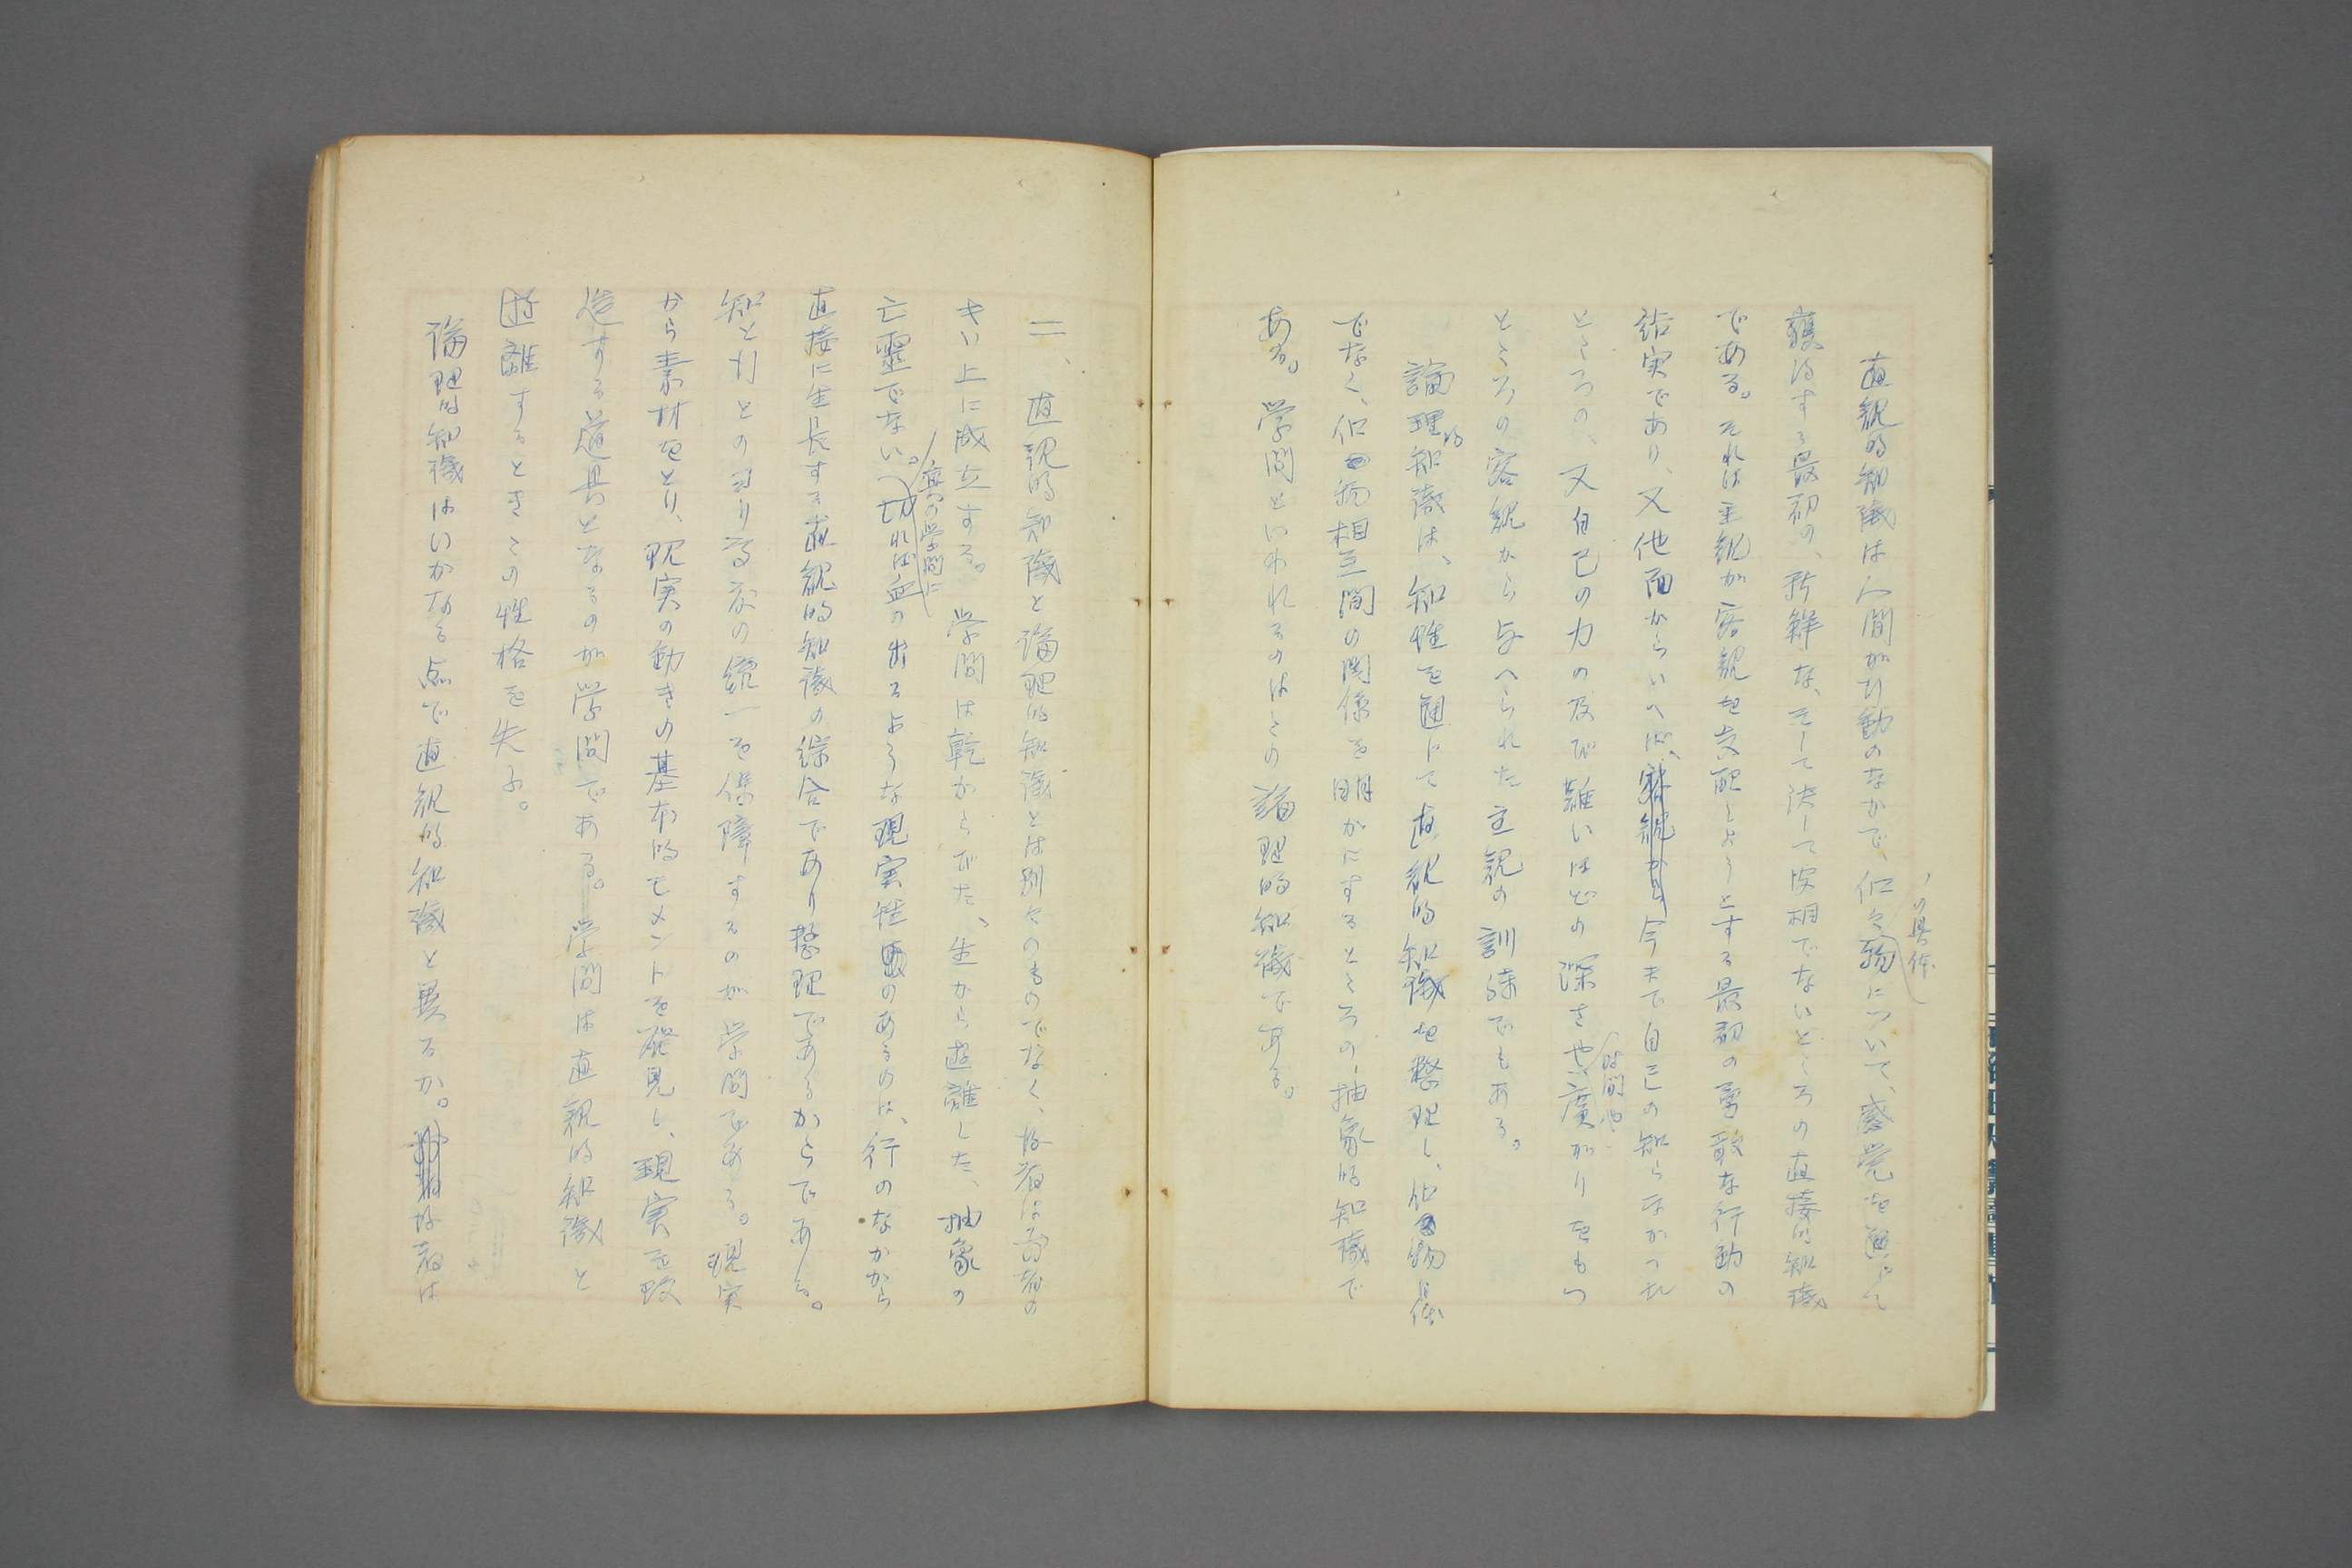 直観的知識は人間が行動のなかで、個々の具体物について、感覚を通じて
獲得する最初の、新鮮な、そして決して皮相でないところの直接的知識
である。それは主観が客観を支配しようとする最初の勇敢な行動の
結実であり、又他面からいへば、今まで自己の知らなかつた
ところの、又自己の力の及び難いほどの深さや時間や廣がりをもつ
ところの客観から与へられた主観の訓練でもある。
論理的知識は、知性を通じて直観的知識を整理し、個物自体
でなく、個物相互間の関係を明かにするところの抽象的知識で
ある。学問といわれるのはこの論理的知識である。
二、直観的知識と論理的知識とは別々のものでなく、後者は前者の
上に成立する。学問は乾からびた、生から遊離した、抽象の
亡霊でない。真の学問に切れば血の出るような現実性のあるのは、行のなかから
直接に生長する直観的知識の綜合であり整理であるからである。
知と行とのより高次の統一を保障するのが学問である。現実
から素材をとり、現実の動きの基本的モメントを発見し、現実を改
造する道具となるのが学問である。学問は直観的知識と
遊離するときこの性格を失ふ。
論理的知識はいかなる点で直観的知識と異るか。後者は